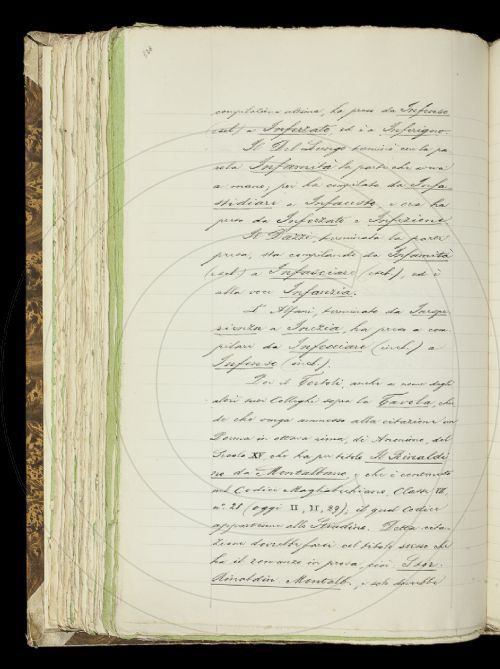 compilatore ultima, ha preso da Infenso
(escl.) a Inferzato, ed è a Inferigno.
Il Del Lungo terminò con la pa
rola Infamità la parte che aveva
a mano; poi ha compilato da Infa
stidiare a Infausto, e ora ha
preso da Inferzato a Infezione.
Il Dazzi, terminata la parte
presa, sta compilando da Infamità
(escl.) a Infasciare (escl.), ed è
alla voce Infanzia.
L'Alfani, terminato da Inespe
rienza a Inezia, ha preso a com
pilare da Infecciare (incl.) a
Infenso (incl.).
Poi il Tortoli, anche a nome degli
altri suoi Colleghi sopra la Tavola, chie
de che venga ammesso alla citazione un
Poema in ottava rima, di Anonimo, del
Secolo XV che ha per titolo Il Rinaldi
no da Montalbano, e che è contenuto
nel Codice Magliabechiano, Classe VII,
n.° 28 (oggi II, II, 29), il qual Codice
appartenne allo Stradino. Detta cita
zione dovrebbe farsi col titolo stesso che
ha il romanzo in prosa, cioè: Stor.
Rinaldin. Montalb., e solo dovrebbe